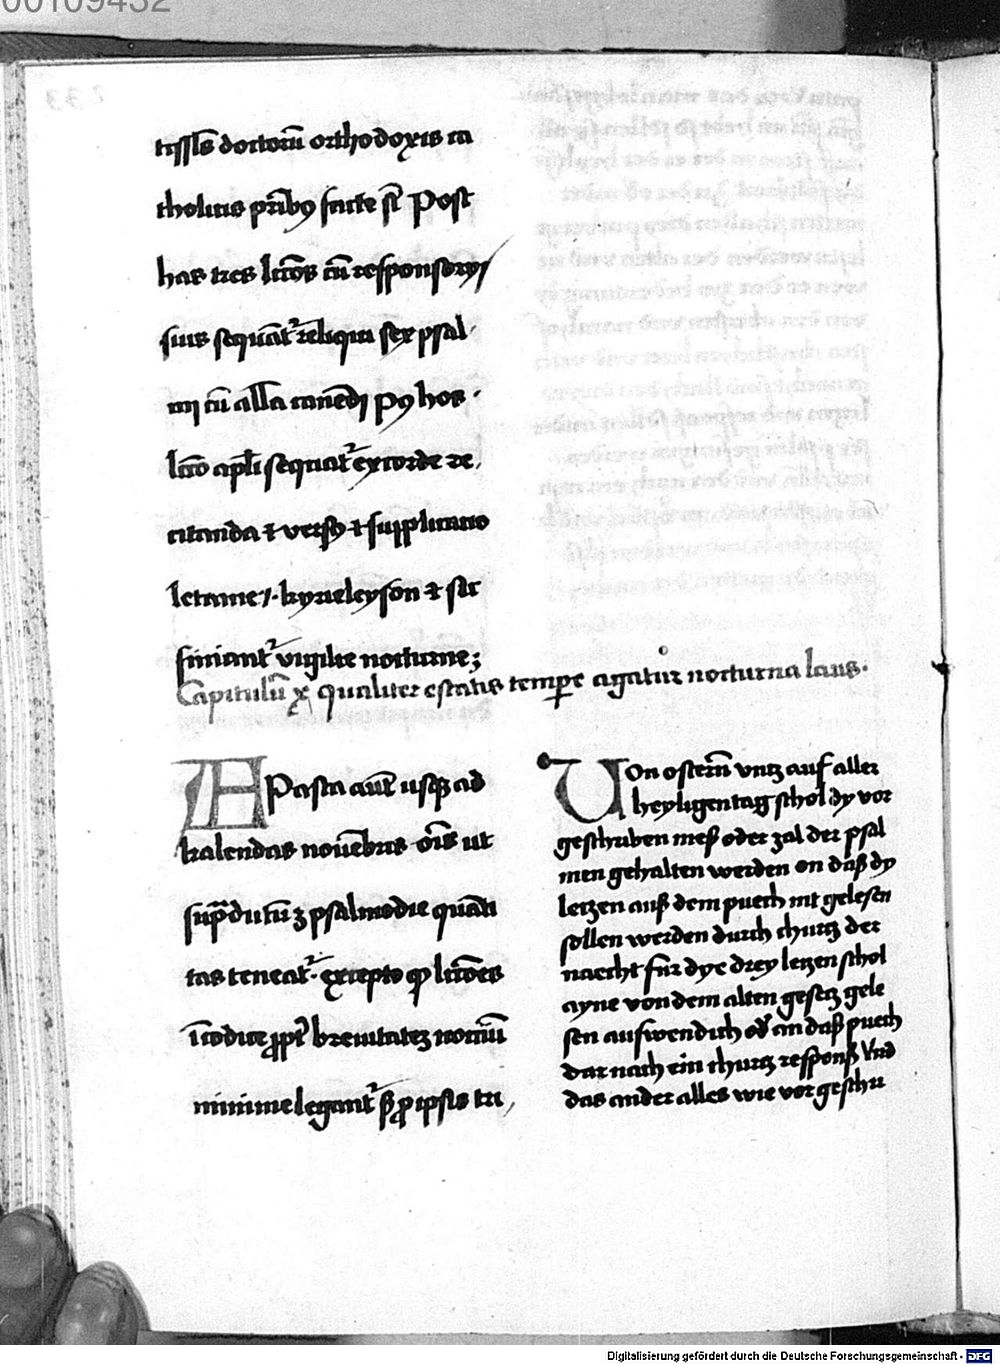 00109432
tissīs doctorū orthodoxis ca
tholicis pr̄ibꝯ facte sȳ Post
has tres lctōēs cū responsorys
suis sequāt᷑ reliqui sex psal
mi cū all̄a canēdi Pꝯ hos
lctō apl̄i sequat᷑ ex corde re
citanda ⁊ versꝯ ⁊ supplicatio
letanie / kyrieleyson ⁊ sic
finiant᷑ vigilie nocturne;
Capitulū x qualiter estatis tempꝑe agatur nocturna laus.
A Pasca autē usqꝫ ad
kalendas nouēbris oīs ut
sup̄dictū ꝫ psalmodie quāti
tas teneat᷑ excepto ꝙ lctōēs
ī codice ꝓpt̄ breuitatēꝫ noctiū
minime legant᷑ sꝫ ꝓ ipsis tri
Von ostern̄ vntz auf aller
heyligen tag schol dy vor
geschriben meß oder zal der psal
men gehalten werden on daß dy
letzen auß dem puech nit gelesen
sollen werden durch churtz der
nacht fur dye drey letzen schol
ayne von dem alten gesetz gele
sen auswendich od̄ an daß puech
dar nach ein churtz responß Vnd
das ander alles wie vor geschri
Digitalisierung gefördert durch die Deutsche Forschungsgemeinschaft - DFG